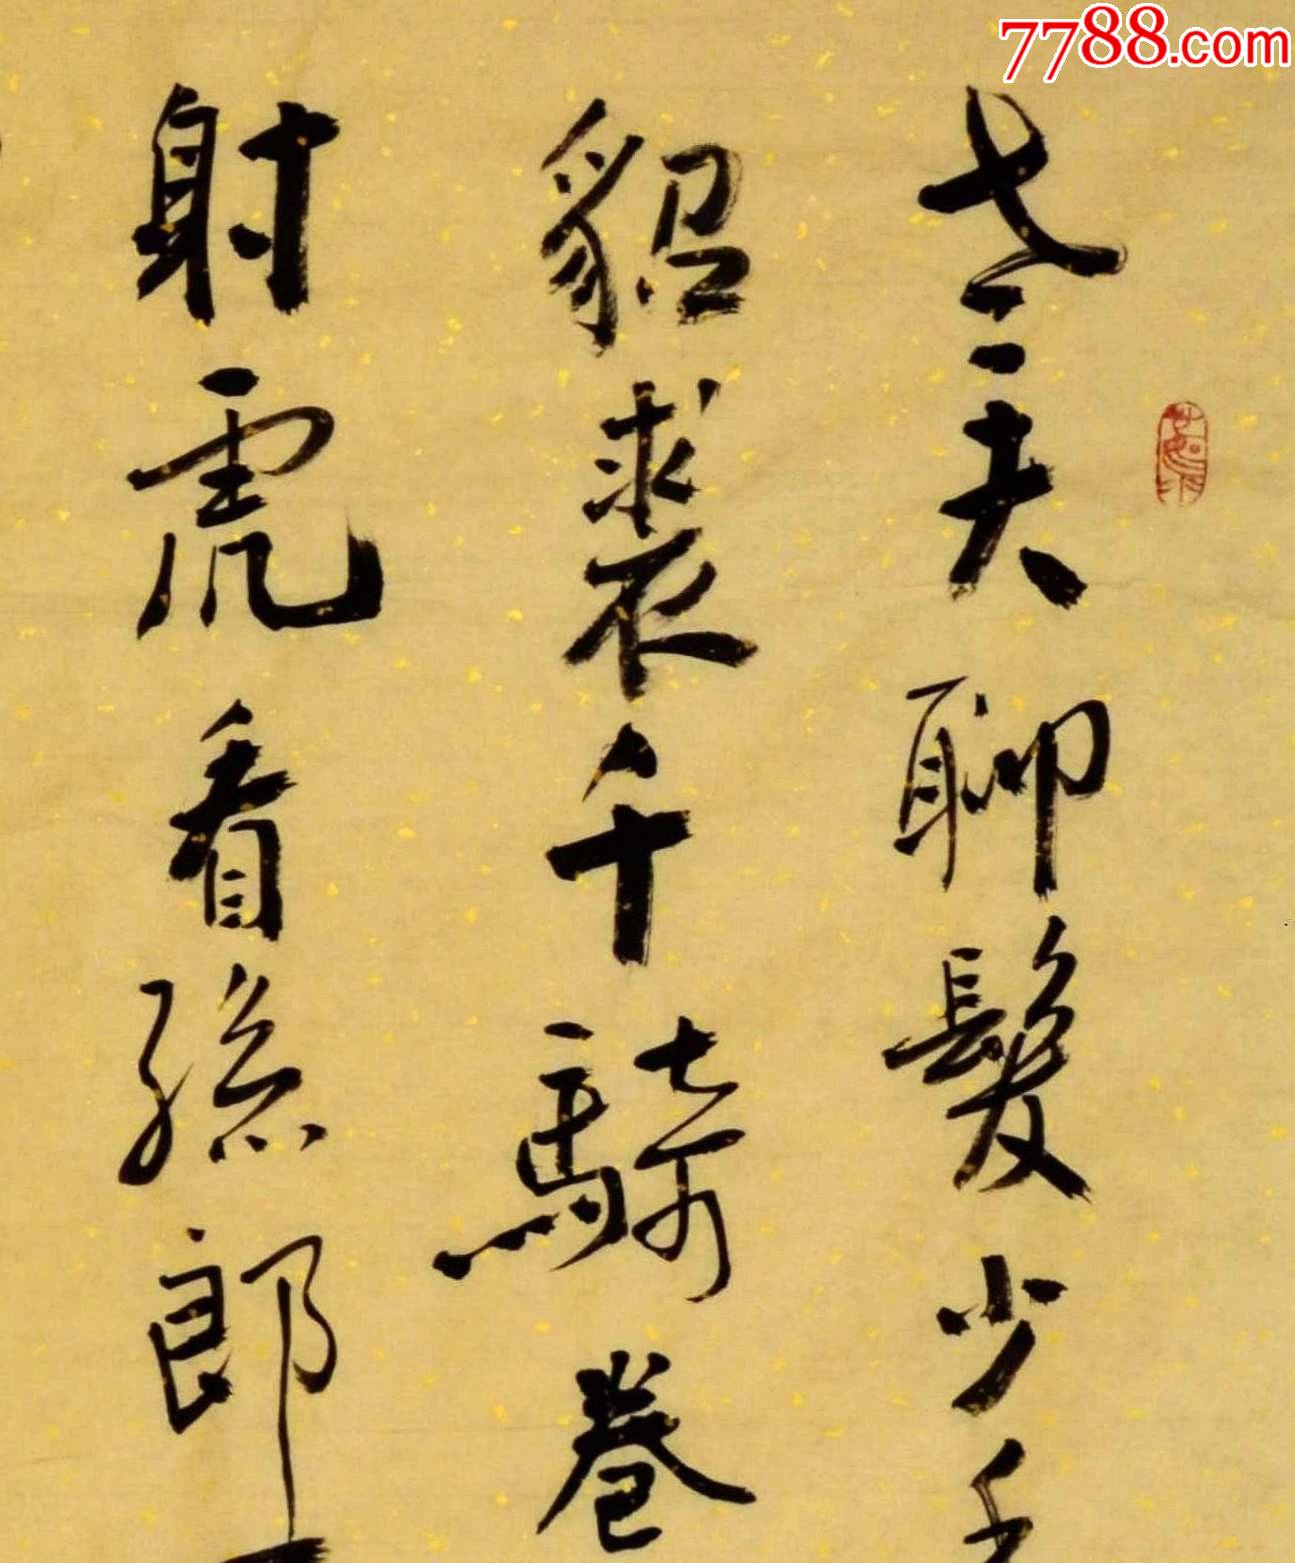 7788.com
老夫聊髮少
貂裘千騎卷
射虎看孫郎